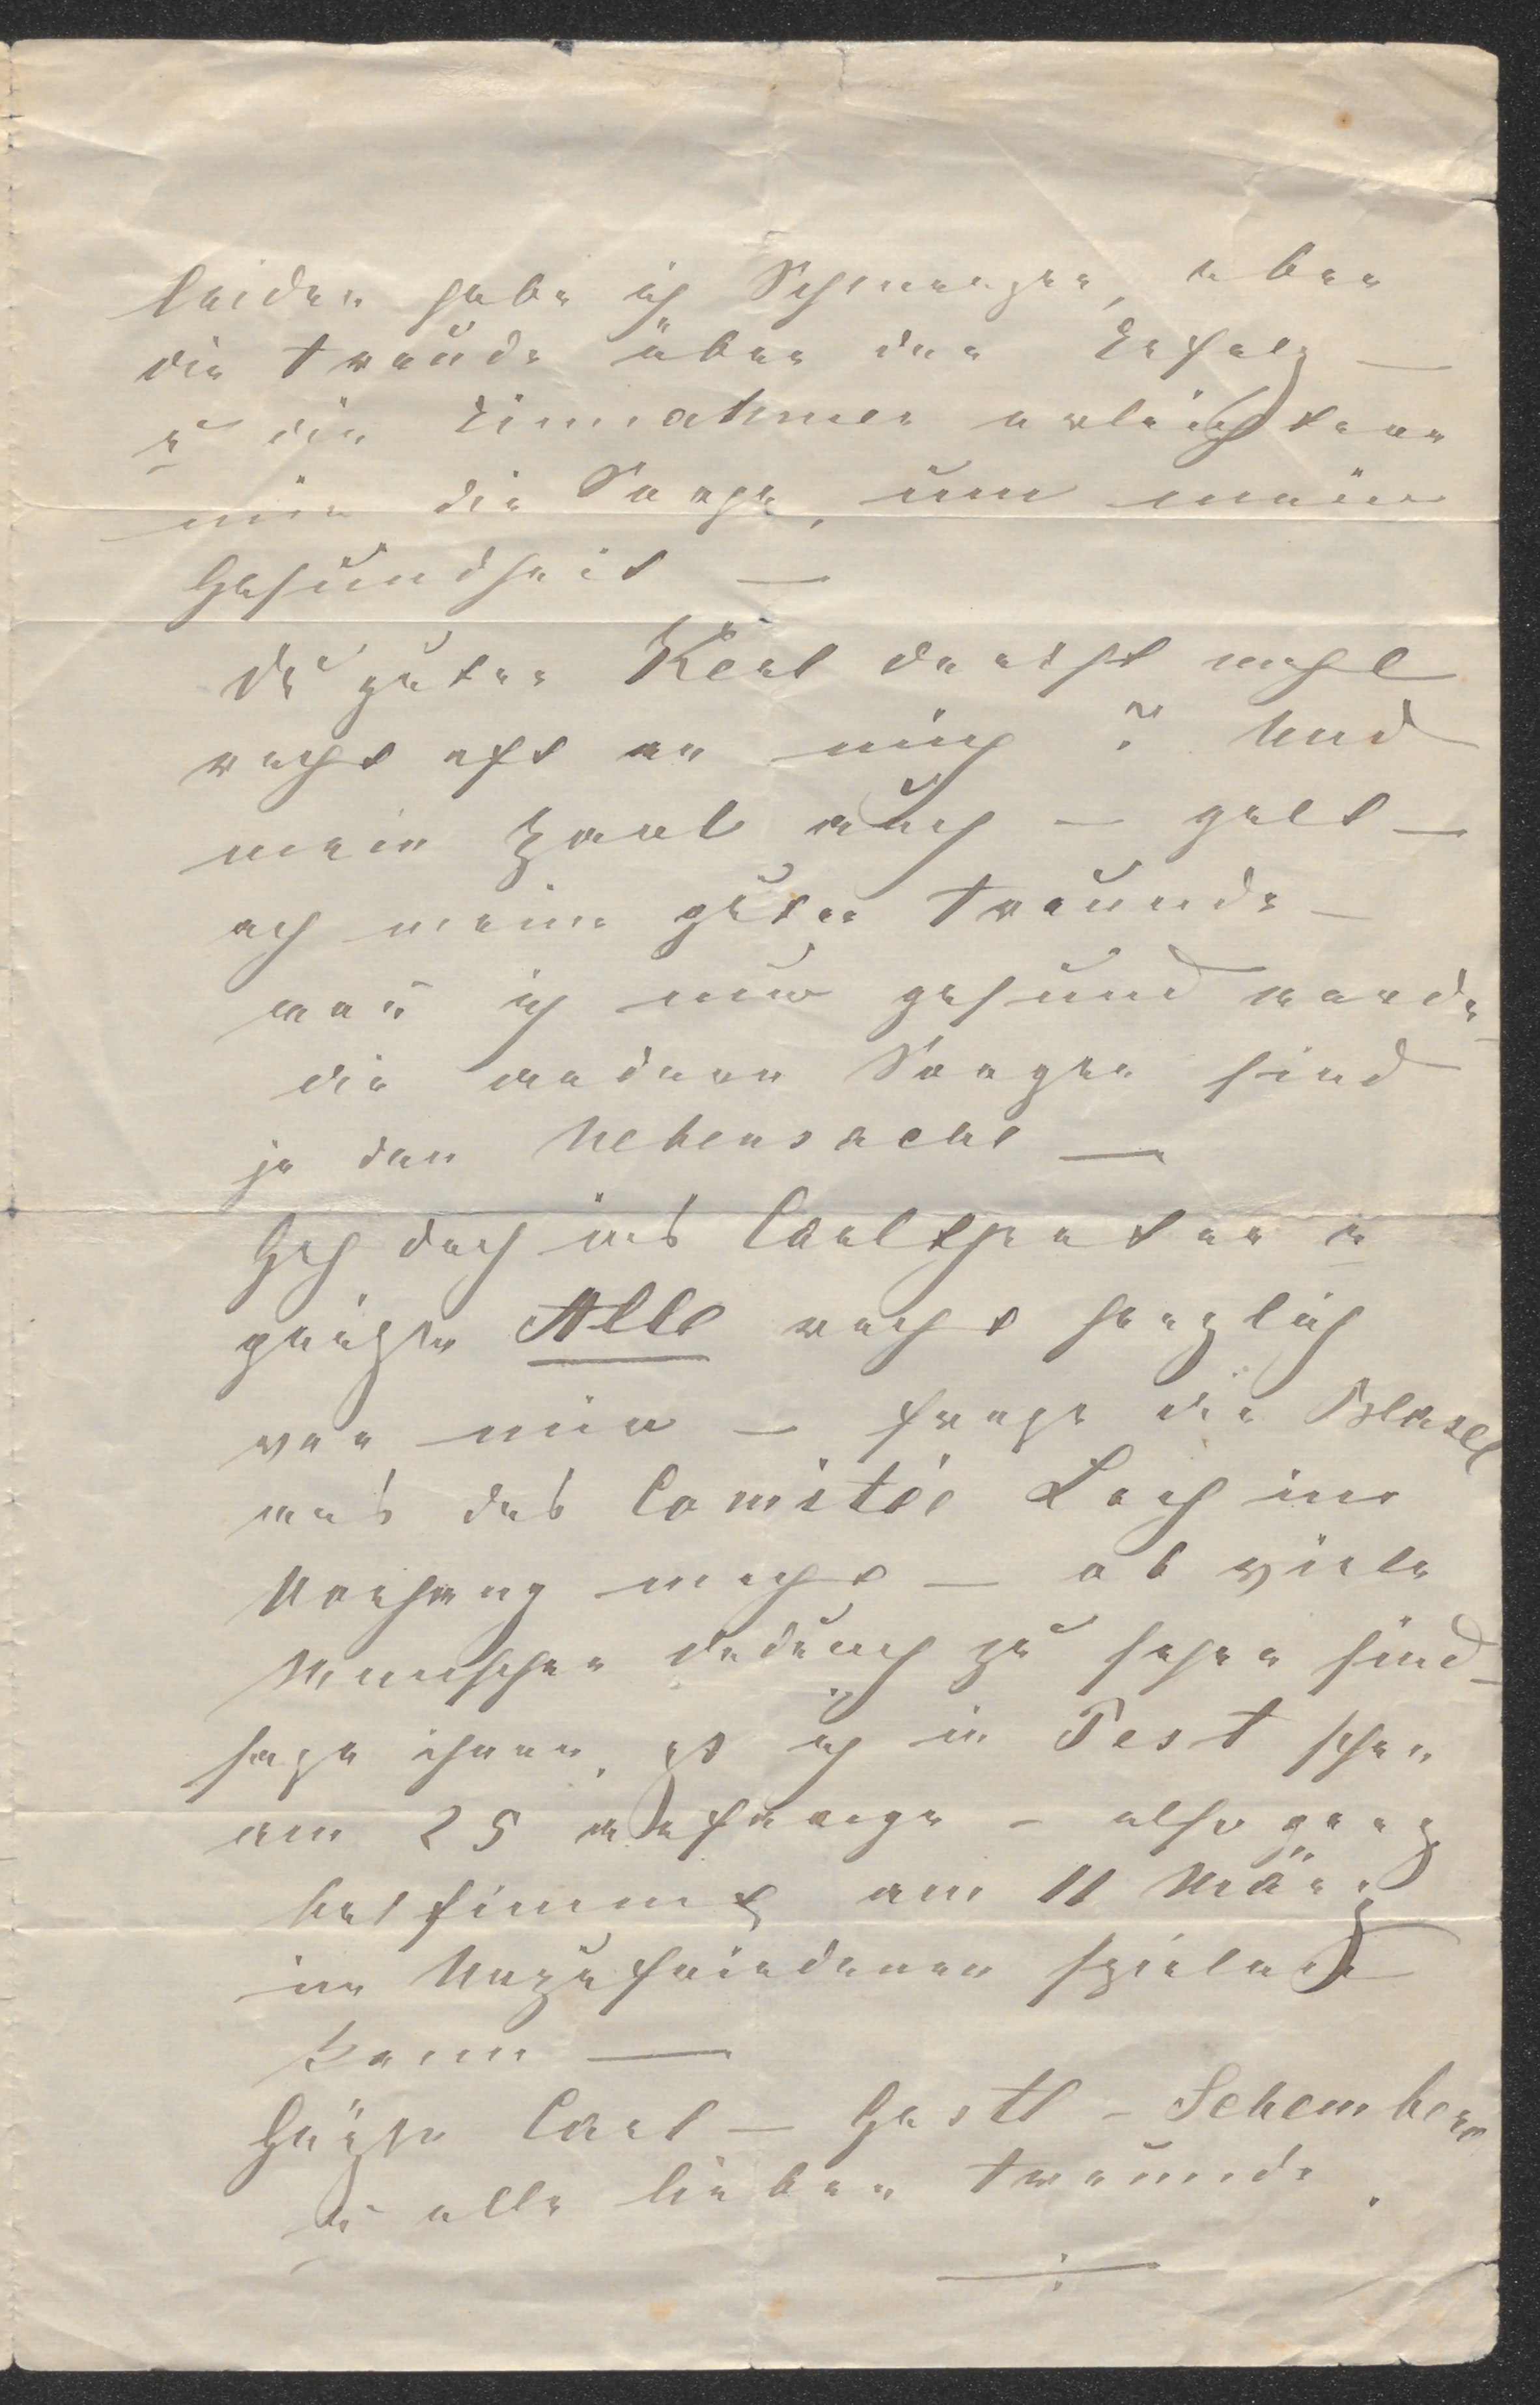 leider habe ich Schmerzen, aber
die Freude über den Erfolg —
u die Einnahmen erleichtern
mir die Sorge, um meine
Gesundheit —
Du guter Kerl denkst wohl
recht oft an mich? Und
mein Karl auch — gelt —
ach meine guten Freunde —
wen̄ ich nur gesund werde
die anderen Sorgen sind
ja dan Nebensache —
Geh doch ins Carltheater u
grüße Alle recht herzlich
von mir — frage die Blasel
was das Comitée Loch im
Vorhang macht — ob viele
Menschen dadurch zu sehen sind —
sage ihnen, ich in Pest schon
am 25 anfange — also ganz
bestimmt am 11 März
im Unzufriedenen spielen
kann —
Grüße Carl — Gostl — Schemberg
u alle lieben Freunde.